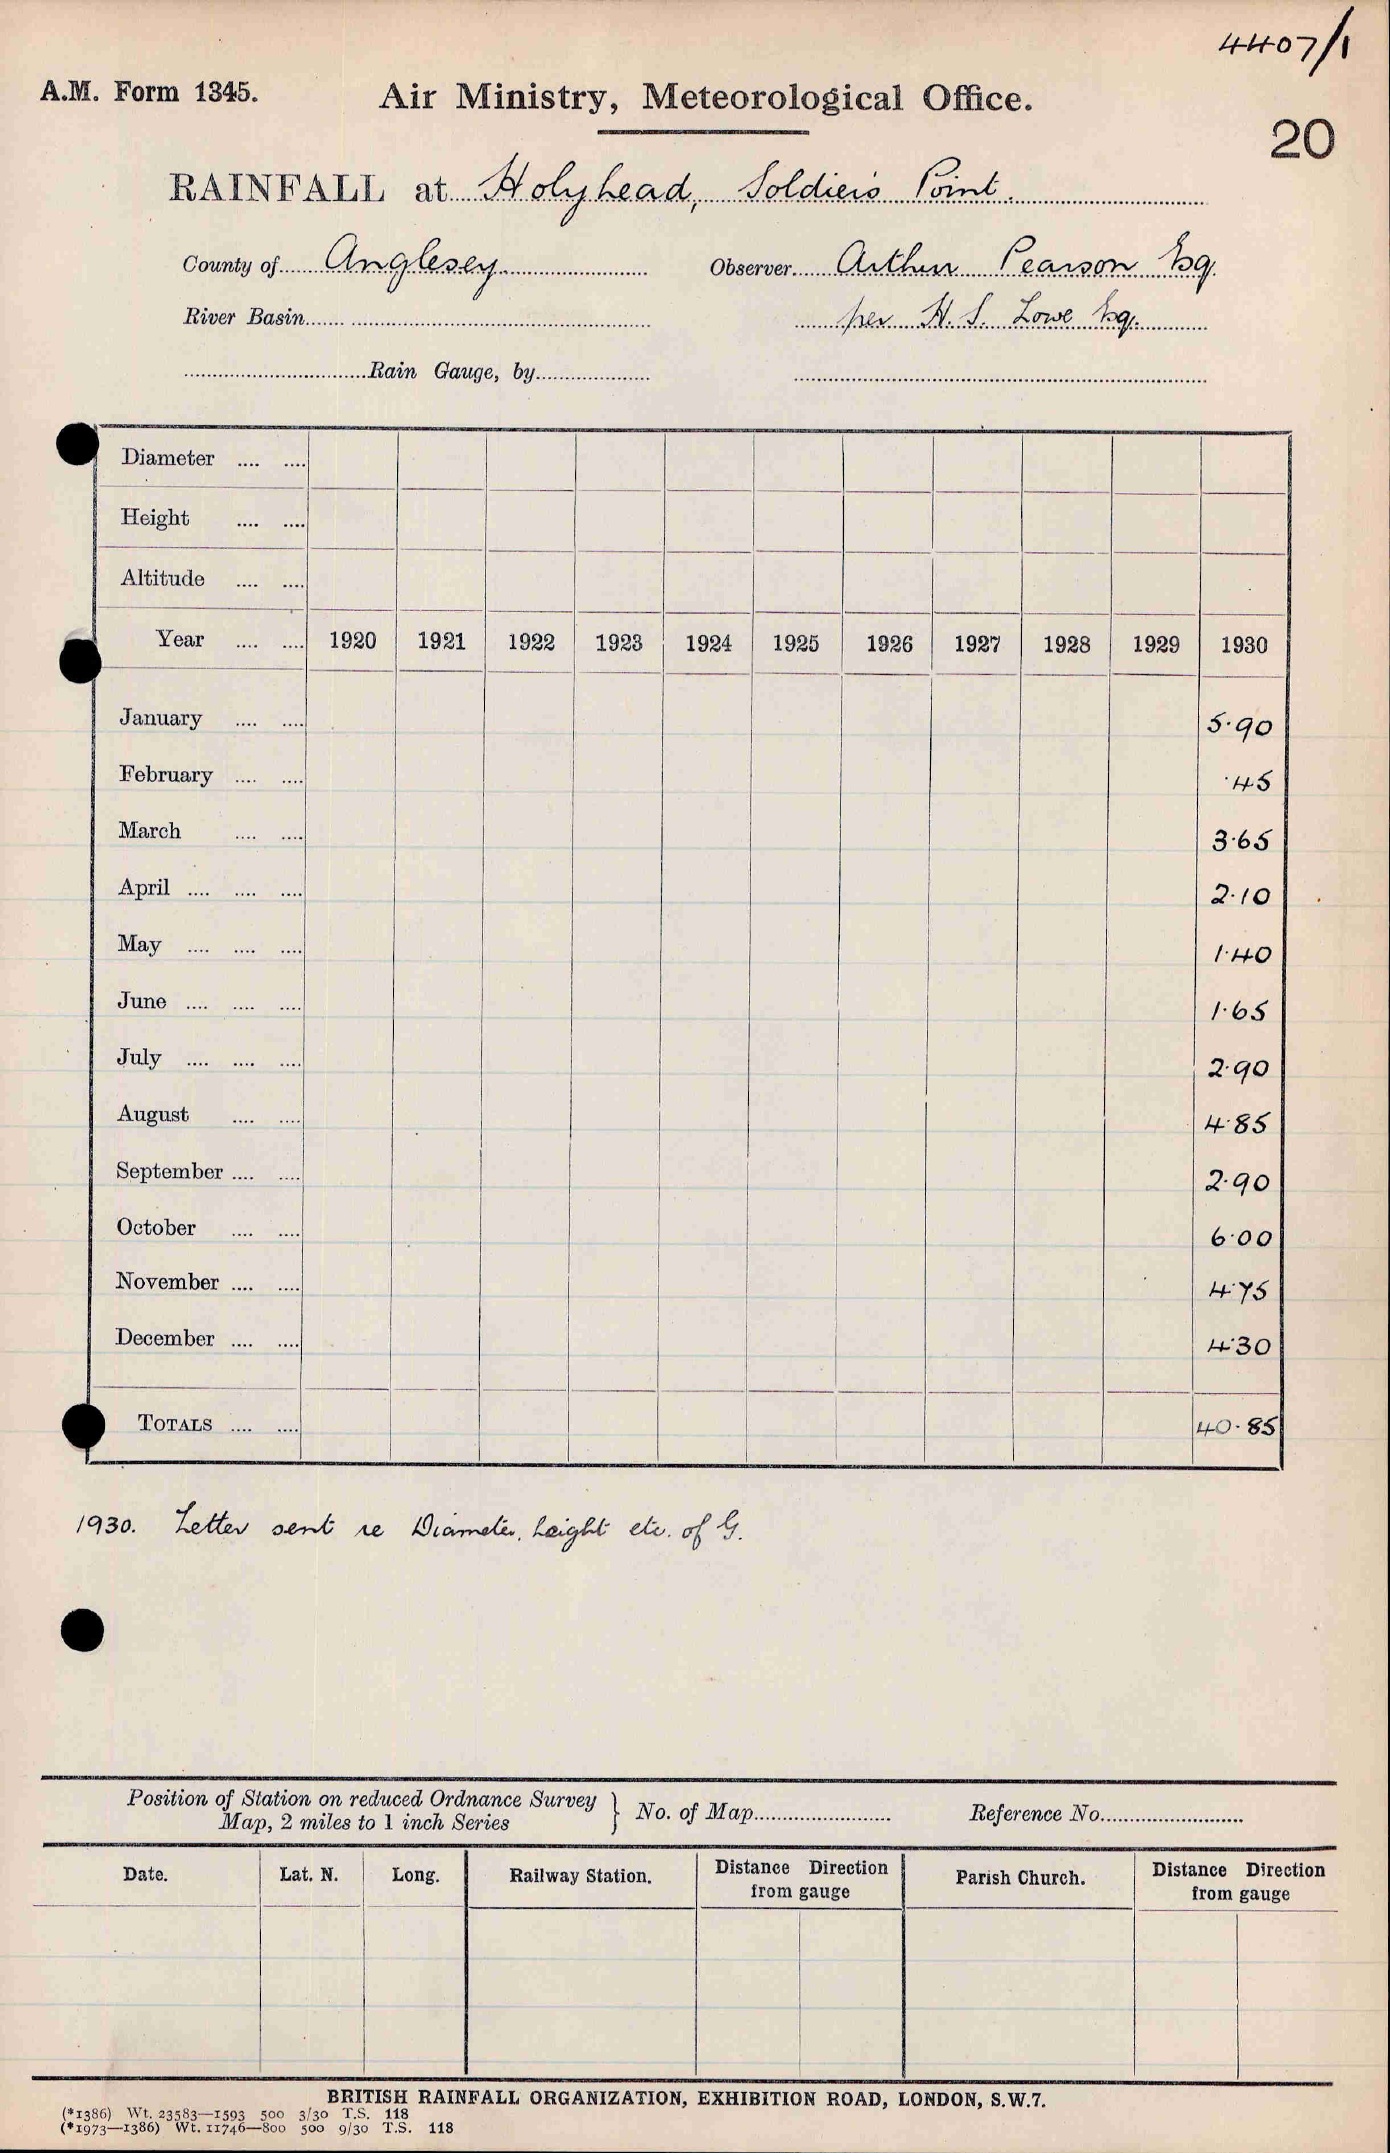 4407/1
A.M. Form 1345. Air Ministry, Meteorological Office.
20
RAINFALL at Holyhead, Soldier's Point.
County of Anglesey Observer Arthur Pearson Esq
River Basin per H. S. Lowe Esq.
Rain Gauge, by
Diameter
Height
Altitude
Year 1920 1921 1922 1923 1924 1925 1926 1927 1928 1929 1930
January 5.90
February .45
March 3.65
April 2.10
May 1.40
June 1.65
July 2.90
August 4.85
September 2.90
October 6.00
November 4.75
December 4.30
TOTALS 40.85
1930. Letter sent re Diameter, height etc. of G.
Position of Station on reduced Ordnance Survey
Map, 2 miles to 1 inch Series } No. of Map Reference No.
Date. Lat. N. Long. Railway Station. Distance Direction from gauge Parish Church. Distance Direction from gauge
BRITISH RAINFALL ORGANIZATION, EXHIBITION ROAD, LONDON, S.W.7.
(*1386) Wt. 23583—1593 500 3/30 T.S. 118
(*1973—1386) Wt. 11746—800 500 9/30 T.S. 118